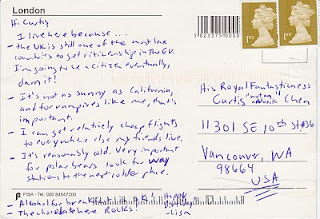 London
Hi Curtis
I live here because...
- the UK is still one of the most lax
countries to get citizenship in the EU.
I'm going to be a citizen eventually,
damn it!
- It's not as sunny as California,
and for vampires like me, that's
important.
- I can get relatively cheap flights
to everywhere else my friends live.
- It's reasonably cold. Very important
for polar bears look for way
stations to the next colder place.
- Alcohol for breakfast
- The chocolate here Rocks!
-lisa
FISA - Tel. 020 84547200
5 023375 000003
1ST
1ST
His Royal Fantasticness
Curtis Chen
11301 SE 10th St #36
Vancouver, WA
98664
USA